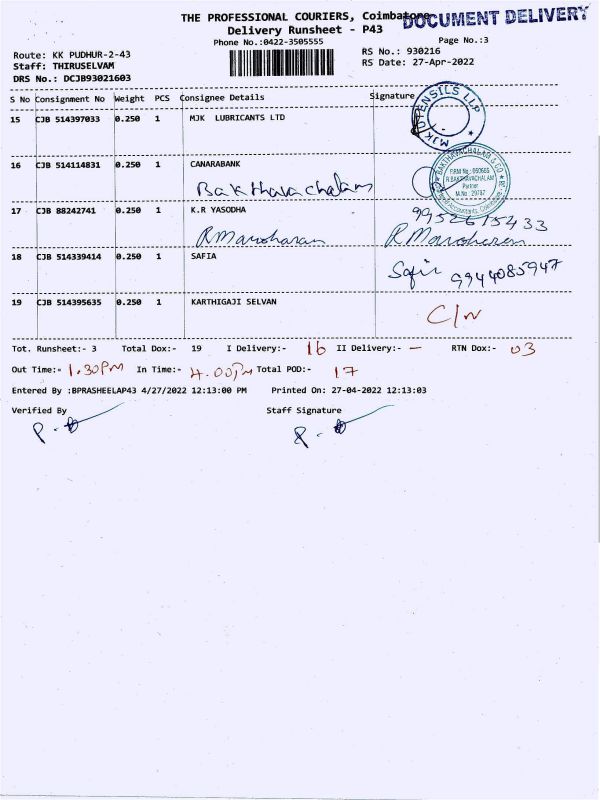 THE PROFESSIONAL COURIERS, Coimbatore
DOCUMENT DELIVERY
Delivery Runsheet - P43
Phone No.:0422-3505555
Page No.:3
Route: KK PUDHUR-2-43
RS No.: 930216
Staff: THIRUSELVAM
RS Date: 27-Apr-2022
DRS No.: DCJB93021603
S No Consignment No Weight PCS Consignee Details Signature
15 CJB 514397033 0.250 1 MJK LUBRICANTS LTD
MJK UTENSILS LLP
16 CJB 514114831 0.250 1 CANARABANK
Bakthavachalam
BAKTHAVACHALAM & CO
R.BAKTHAVACHALAM
Partner
M.No : 29787
17 CJB B8242741 0.250 1 K.R YASODHA
9952615433
R Manoharan R Manoharan
18 CJB 514339414 0.250 1 SAFIA
Safia 9944085947
19 CJB 514395635 0.250 1 KARTHIGAJI SELVAN
C/N
Tot. Runsheet:- 3 Total Dox:- 19 I Delivery:- 16 II Delivery:- — RTN Dox:- 03
Out Time:- 1.30PM In Time:- 4.00PM Total POD:- 17
Entered By :BPRASHEELAP43 4/27/2022 12:13:00 PM Printed On: 27-04-2022 12:13:03
Verified By Staff Signature